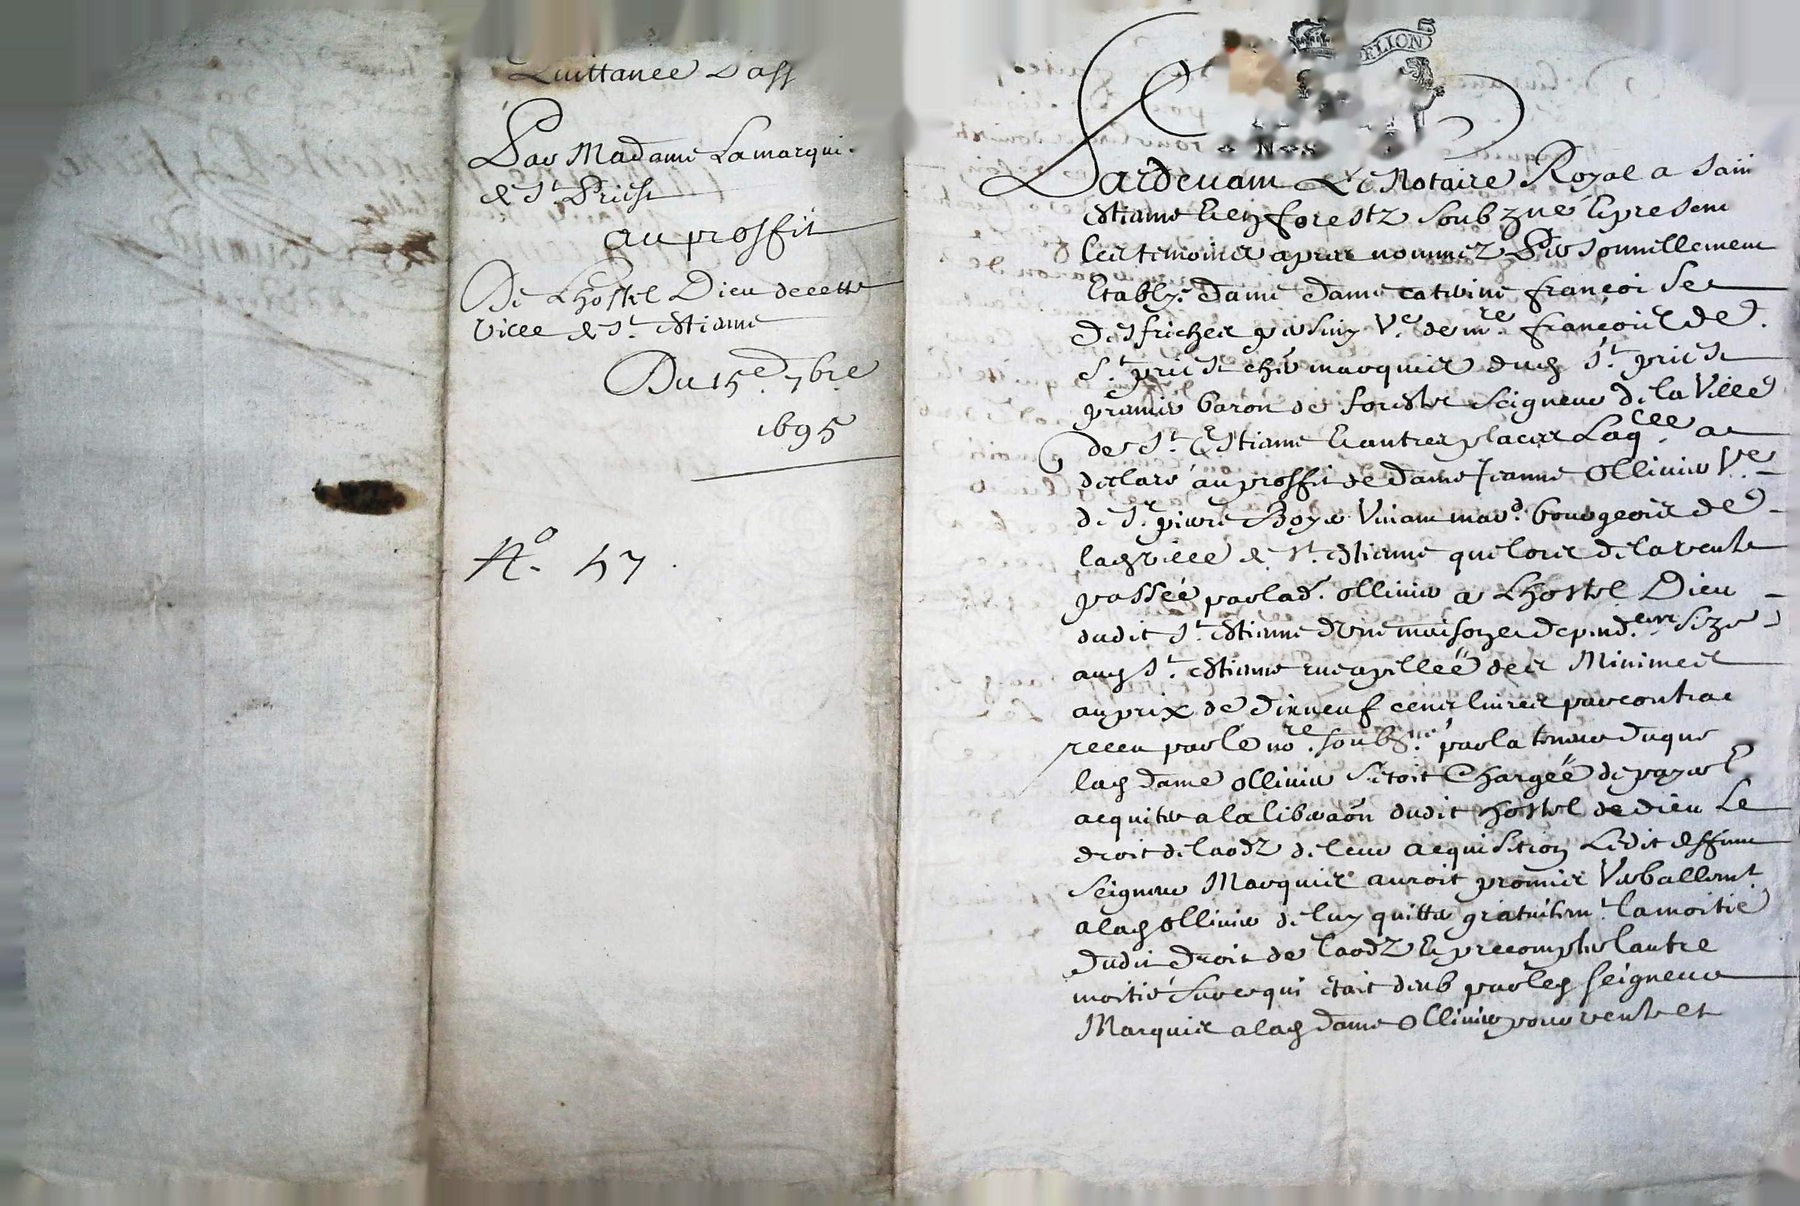 Quittance Dass
Par Madame Lamarqui.
de St. Priest
au proffit
De Lhostel Dieu decette
Ville de St. Estienne
Du 15e. 7bre
1695
No. 57.
ELION
Pardevant Le Notaire Royal a Sain
Estienne En forestz soubzne Epresent
Les temoins apres nommez Personnellement
Establye dame dame caterine françoise
De
St. priest cher marquis dud St. priest
premier baron de forestz seigneur de la Ville
de St. Estienne Eautres places Laqlle a
declaré au proffit de dame Jeanne Ollivier Ve
de Sr. pierre Boyer Vivant mard. bourgeois de
lad ville de St. Estienne que lors de la vente
passée par lad. ollivier a Lhostel Dieu
dudit St. Estienne dune maison depend.ces size
aud St. Estienne rue apellée des Minimes
au prix de dixneuf cens livres par contrat
receu par le nore. soubs.ne par la teneur duque
lad dame ollivier setoit Chargée de payer
acquiter a la liberaon dudit hostel de dieu Le
droit de laodz de leur acquisition Ledit deffunt
seigneur Marquis auroit promis Verballemt.
a lad ollivier de luy quitter gratuitemt. la moitié
dudit droit de laodz E precompter lautre
moitié sur ce qui etait deub par led seigneur
Marquis a lad dame Ollivier pour vente et